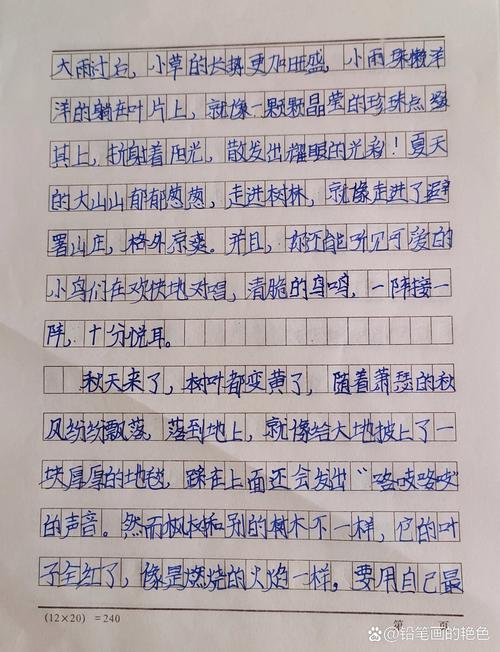 大雨过后，小草的长势更加旺盛，小雨珠懒洋
洋的躺在叶片上，就像一颗颗晶莹的珍珠点缀
其上，折射着阳光，散发出耀眼的光彩！夏天
的大山山郁郁葱葱，走进树林，就像走进了避
署山庄，格外凉爽。并且，你还能听见可爱的
小鸟们在欢快地对唱，清脆的鸟鸣，一阵接一
阵，十分悦耳。
秋天来了，树叶都变黄了，随着萧瑟的秋
风纷纷飘落。落到地上，就像给大地披上了一
块厚厚的地毯，踩在上面还会发出“咯吱咯吱”
的声音。然而枫树和别的树木不一样，它的叶
子全红了，像是燃烧的火焰一样。要用自己最
(12×20) = 240
第 页
@铅笔画的艳色